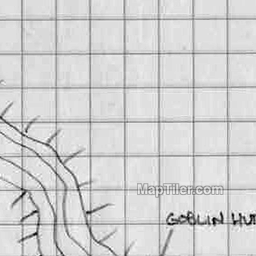 MapTiler.com
GOBLIN HUT